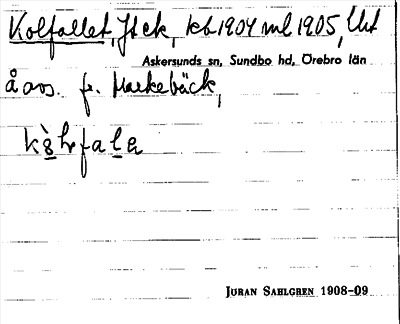 Kolfallet, Jt ek, kb 1904 ml 1905,
Askersunds sn, Sundbo hd, Örebro län
å avs. fr. Markebäck,
JÖRAN SAHLGREN 1908-09